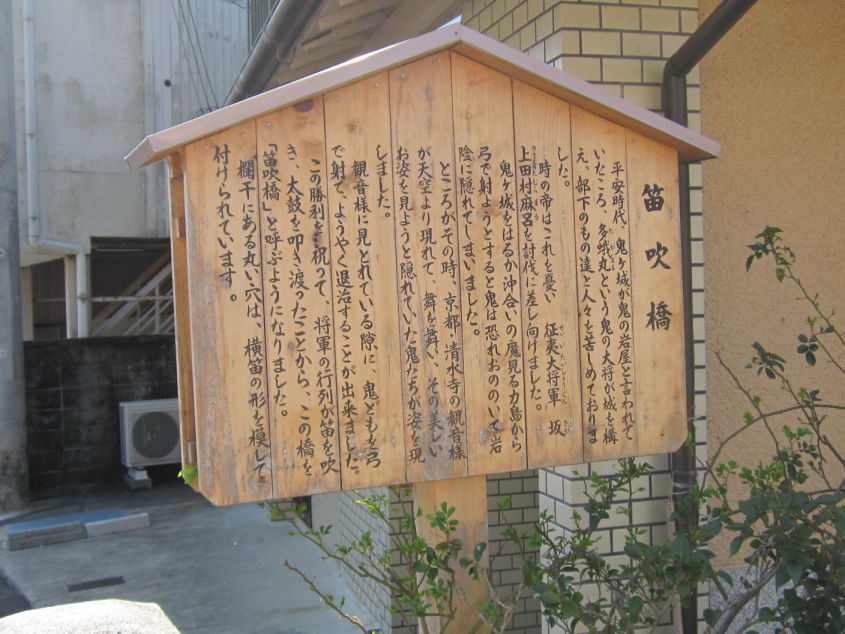 笛吹橋
平安時代、鬼ヶ城が鬼の岩屋と言われて
いたころ、多蛾丸という鬼の大将が城を構
え、部下のもの達と人々を苦しめておりま
した。
時の帝はこれを憂い 征夷大将軍 坂
上田村麻呂を討伐に差し向けました。
鬼ヶ城をはるか沖合いの魔見る力島から
弓で射ようとすると鬼は恐れおののいて岩
陰に隠れてしまいました。
ところがその時、京都・清水寺の観音様
が天空より現れて、舞を舞い、その美しい
お姿を見ようと隠れていた鬼たちが姿を現
しました。
観音様に見とれている隙に、鬼どもを弓
で射て、ようやく退治することが出来ました。
この勝利を祝って、将軍の行列が笛を吹
き、太鼓を叩き渡ったことから、この橋を
「笛吹橋」と呼ぶようになりました。
欄干にある丸い穴は、横笛の形を模して
付けられています。